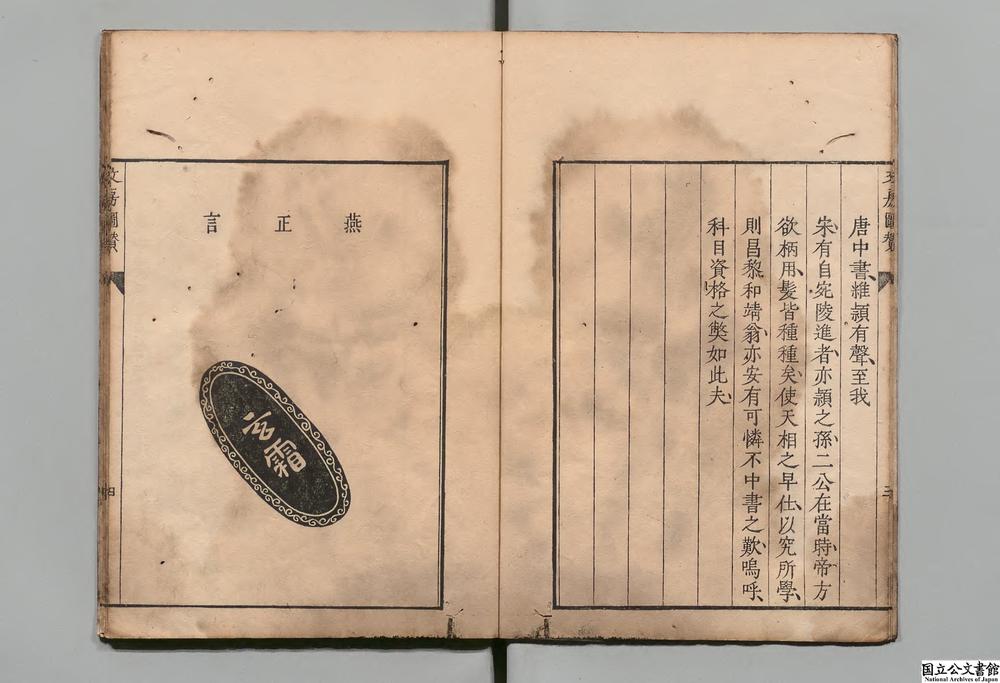 文房圖贊
唐中書、維頴有聲、至我
宋、有自宛陵進者、亦頴之孫、二公在當時、帝方
欲柄用、髮皆種種矣、使天相之早仕、以究所學、
則昌黎和靖翁、亦安有可憐不中書之歎、嗚呼、
科目資格之獘如此夫、
燕正言
玄霜
文房圖贊
四
国立公文書館
National Archives of Japan